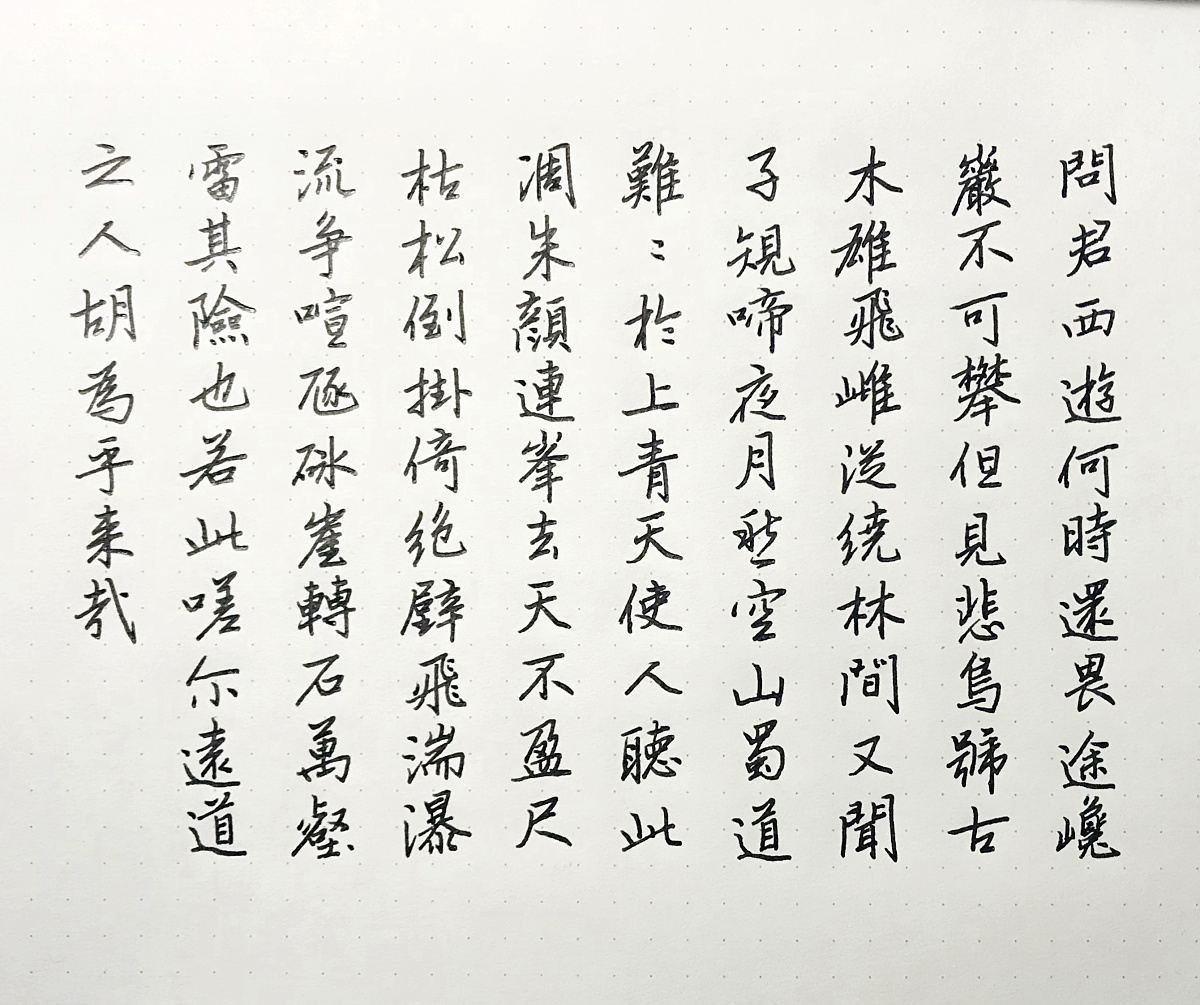 問君西遊何時還畏途巉
巖不可攀但見悲鳥號古
木雄飛雌從繞林間又聞
子規啼夜月愁空山蜀道
難〻於上青天使人聽此
凋朱顏連峯去天不盈尺
枯松倒掛倚绝壁飛湍瀑
流争喧豗砯崖轉石萬壑
雷其險也若此嗟尔遠道
之人胡為乎来哉